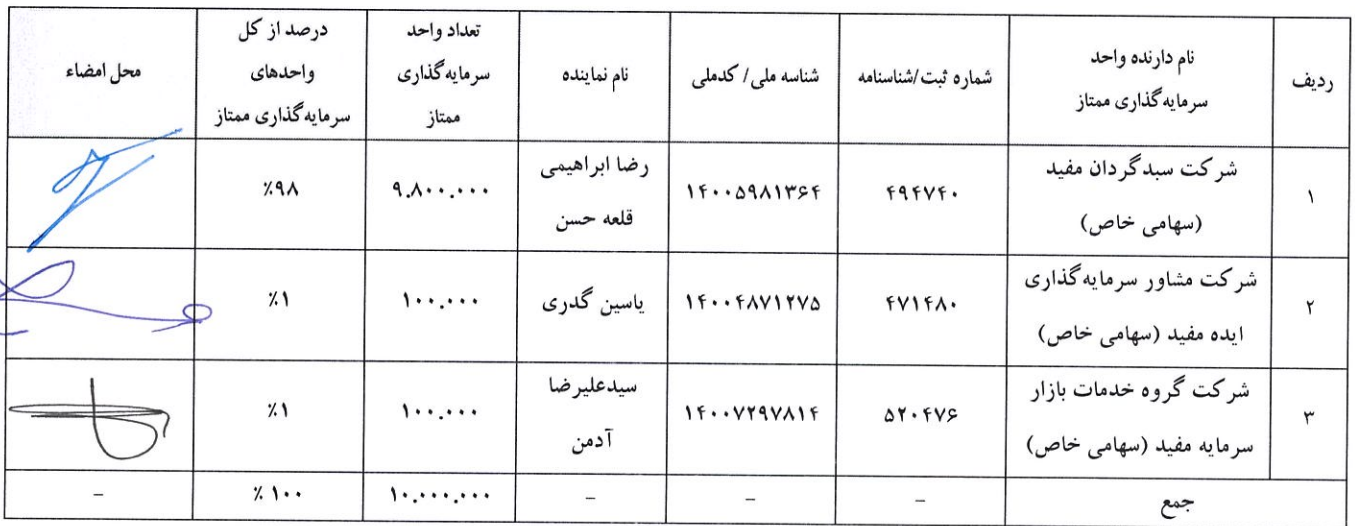 ردیف
نام دارنده واحد
سرمایه‌گذاری ممتاز
شماره ثبت/شناسنامه
شناسه ملی / کدملی
نام نماینده
تعداد واحد
سرمایه‌گذاری
ممتاز
درصد از کل
واحدهای
سرمایه‌گذاری ممتاز
محل امضاء
۱
شرکت سبدگردان مفید
(سهامی خاص)
۴۹۴۷۴۰
۱۴۰۰۵۹۸۱۳۶۴
رضا ابراهیمی
قلعه حسن
۹.۸۰۰.۰۰۰
٪۹۸
۲
شرکت مشاور سرمایه‌گذاری
ایده مفید (سهامی خاص)
۴۷۱۴۸۰
۱۴۰۰۴۸۷۱۲۷۵
یاسین گدری
۱۰۰.۰۰۰
٪۱
۳
شرکت گروه خدمات بازار
سرمایه مفید (سهامی خاص)
۵۲۰۴۷۶
۱۴۰۰۷۲۹۷۸۱۴
سیدعلیرضا
آدمن
۱۰۰.۰۰۰
٪۱
جمع
–
–
–
۱۰.۰۰۰.۰۰۰
٪ ۱۰۰
–